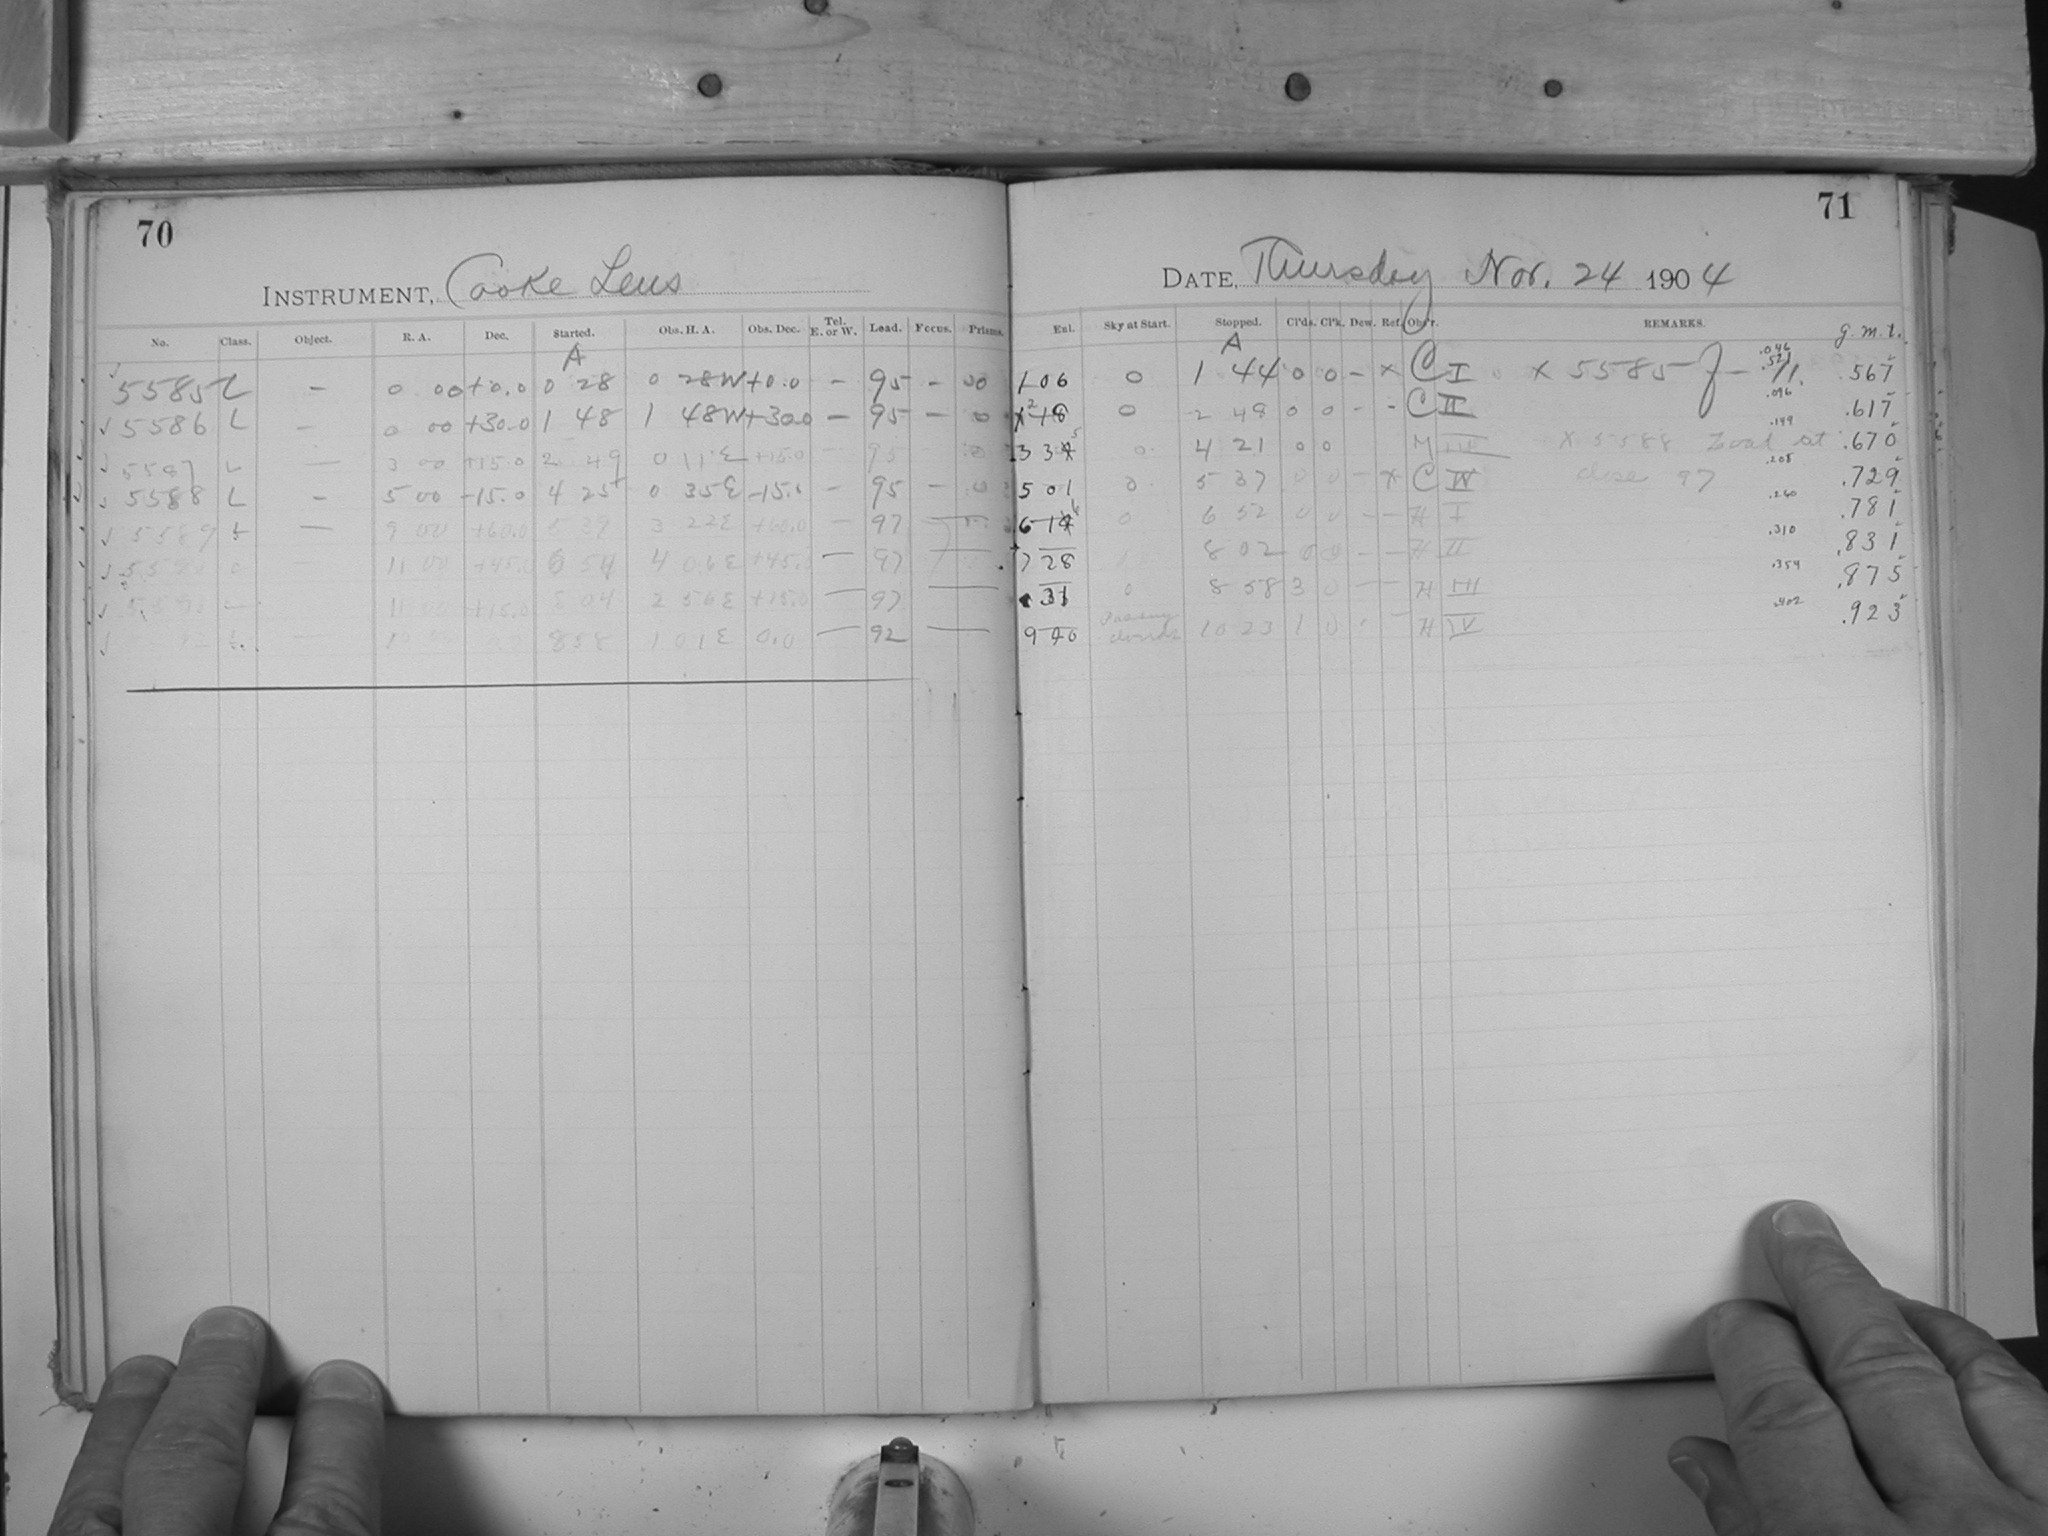 70
71
INSTRUMENT, Cooke Lens
DATE, Thursday Nov. 24 1904
No. Class. Object. R. A. Dec. Started. Obs. H. A. Obs. Dec. Tel. E. or W. Lead. Focus. Prisms. Enl. Sky at Start. Stopped. Cl'ds. Cl'k. Dew. Ref. Obs'r. REMARKS. g. m. t.
A A
5585 L – 0 00 +0.0 0 28 0 28W +0.0 – 95 – 1 06 0 1 44 0 0 – x C I x 5585 .046 .521 .567
5586 L – 0 00 +30.0 1 48 1 48W +30.0 – 95 – 0 2 18 0 2 48 0 0 – – C II .096 .617
5587 L – 3 00 +15.0 2 49 0 11E +15.0 – 95 3 35 0 4 21 0 0 M III x 5588 Lead at .149 .670
5588 L – 5 00 -15.0 4 25 0 35E -15.0 – 95 – 5 01 0 5 37 0 0 – x C IV close 97 .208 .729
5589 L – 9 00 +60.0 5 39 3 22E +60.0 – 97 – 6 16 0 6 52 0 0 – – H I .260 .781
11 00 +45.0 6 54 4 06E +45.0 – 97 – 7 28 8 02 0 0 – – H II .310 .831
11 00 +15.0 8 04 2 56E +15.0 – 97 – 31 0 8 58 3 0 – H III .354 .875
92 L 1 01E 0.0 – 92 – 9 40 Passing clouds 10 23 1 0 – H IV .402 .923